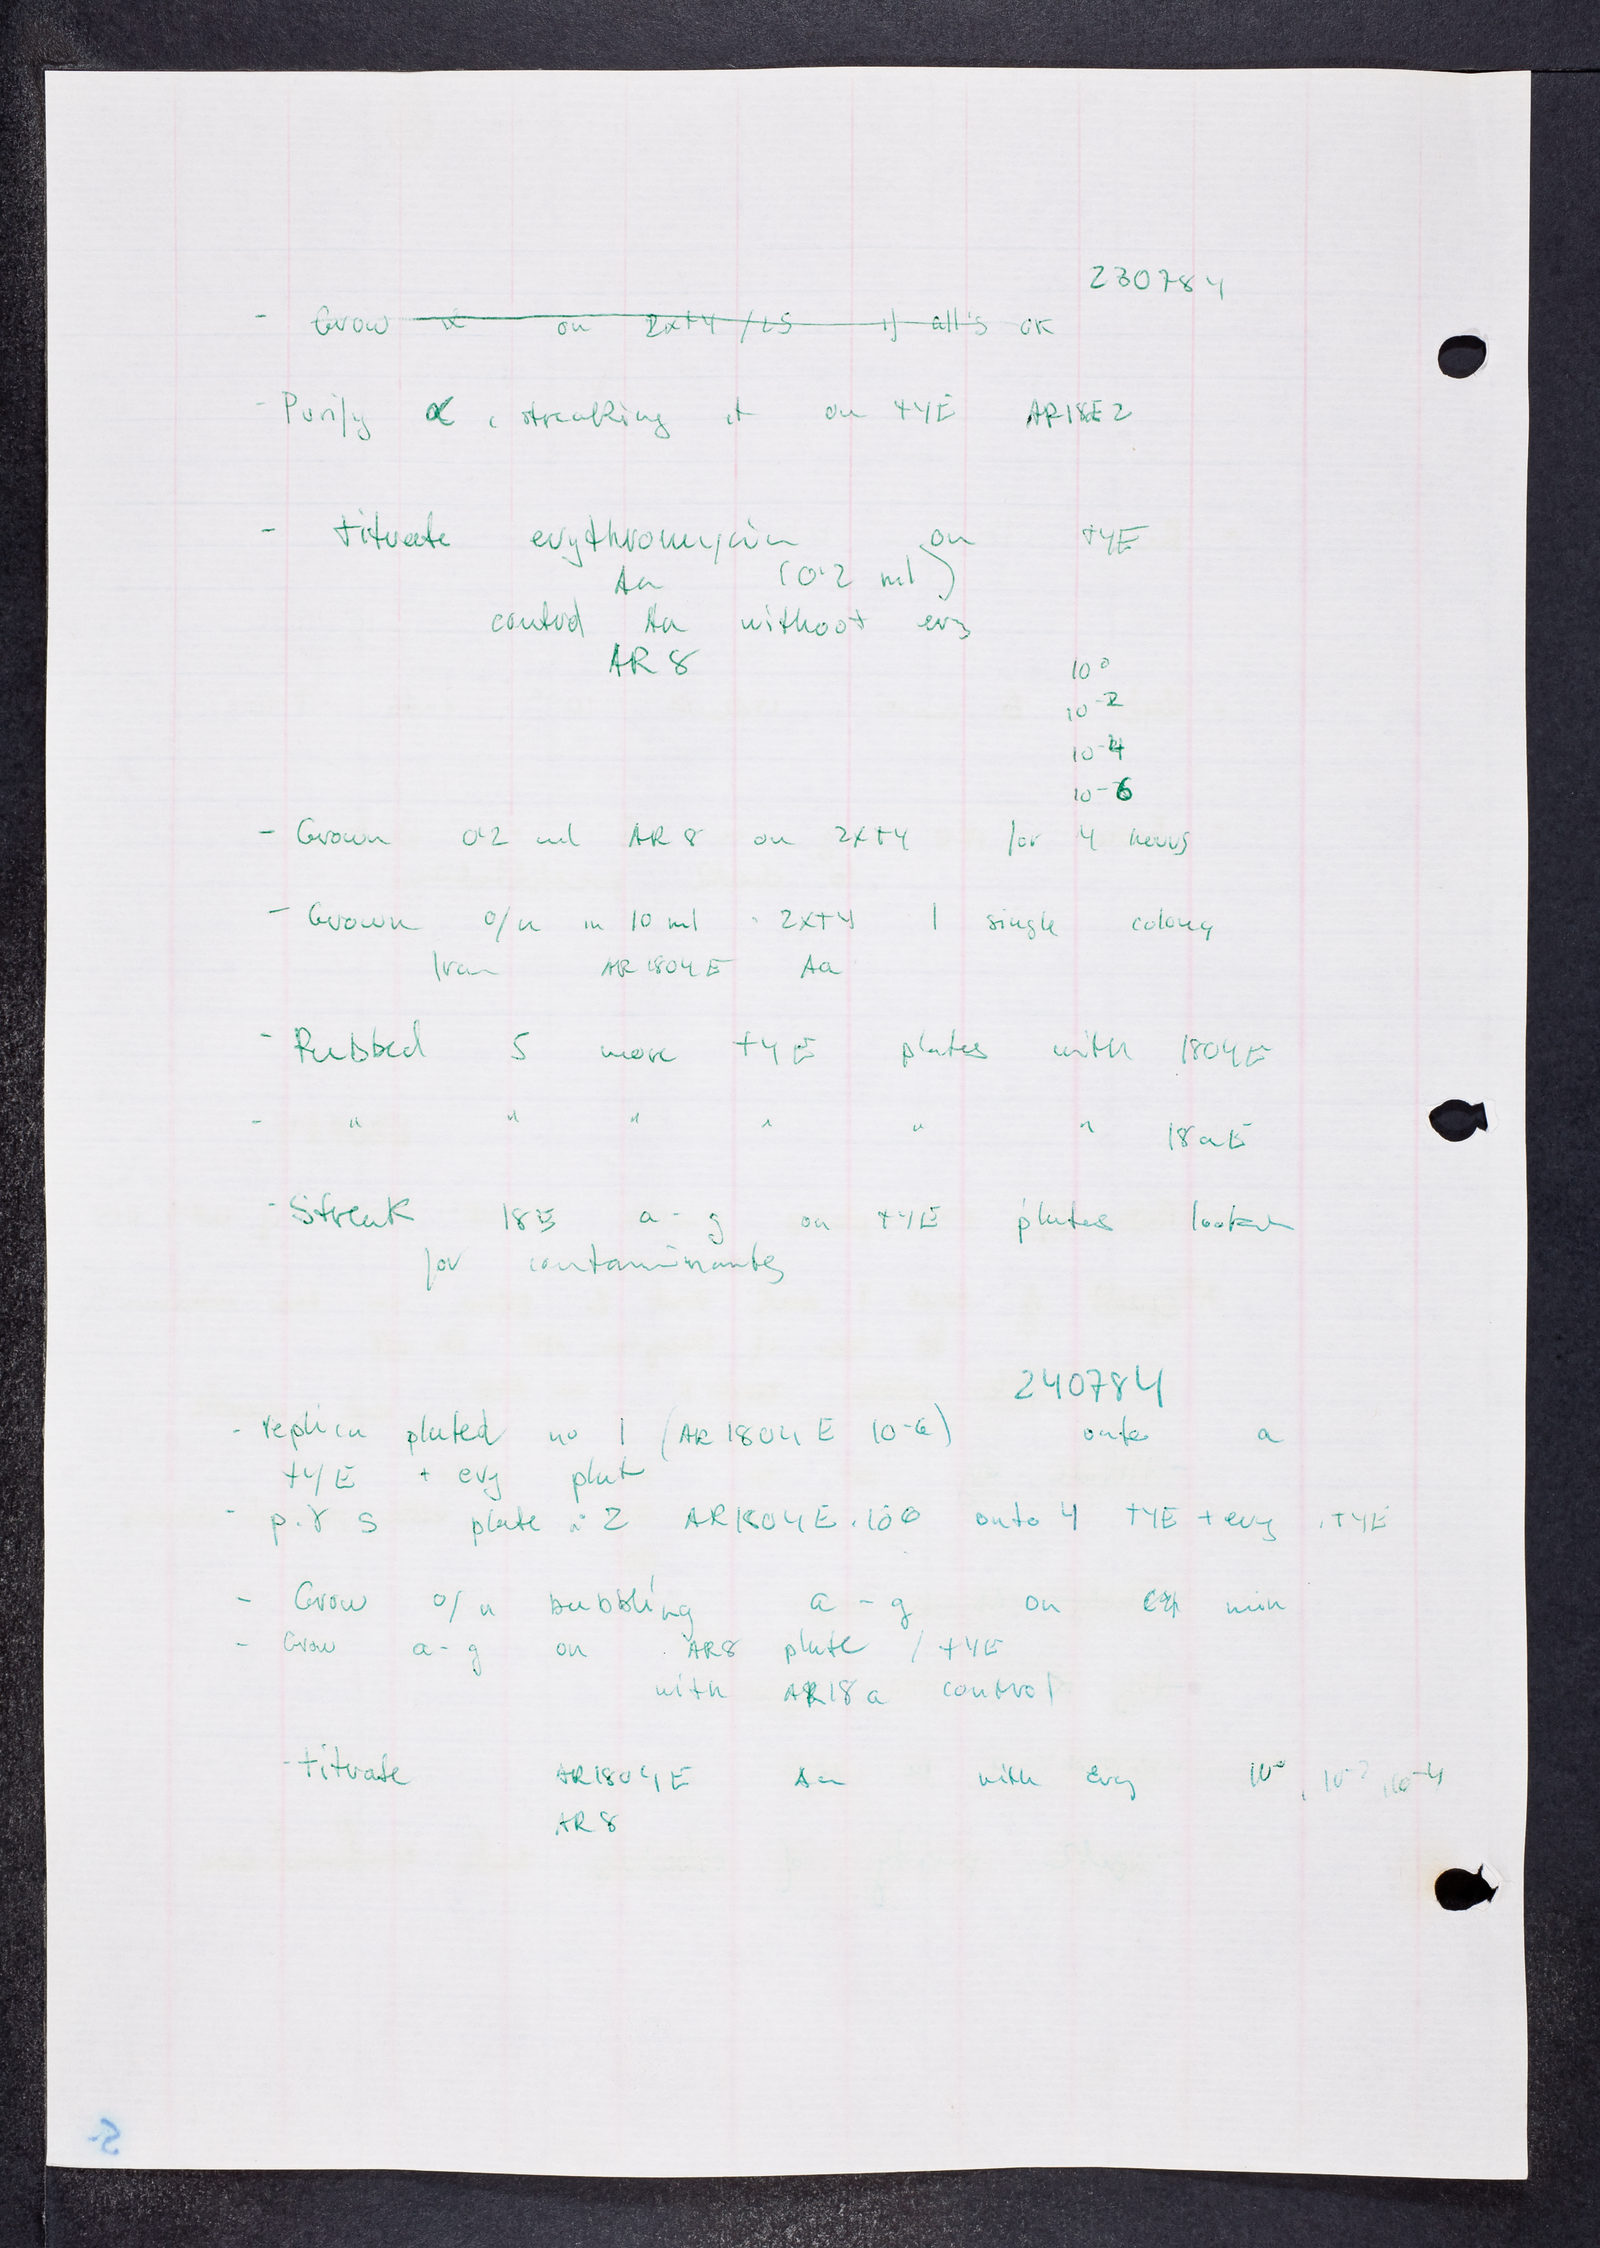 230784
- Grow α on 2xTY/LS if all's OK
- Purify α, streaking it on TYE AR18E2
- titrate erythromycin on TYE
Aa (0.2 ml)
control Aa without ery
AR8
10⁰
10⁻²
10⁻⁴
10⁻⁶
- Grown 0.2 ml AR8 on 2xTY for 4 hours
- Grown o/n in 10 ml 2xTY 1 single colony
from AR1804E Aa
- Rubbed 5 more TYE plates with 1804E
- " " " " " " 18aE
- Streak 18E a-g on TYE plates look
for contaminantes
240784
- replica plated no 1 (AR1804E 10⁻⁶) onto a
TYE + ery plate
- plate 2 AR1804E onto 4 TYE + ery, TYE
- Grow o/n bubbling a-g on min
- Grow a-g on AR8 plate / TYE
with AR18a control
- titrate AR1804E Aa with ery 10⁻⁰, 10⁻², 10⁻⁴
AR8